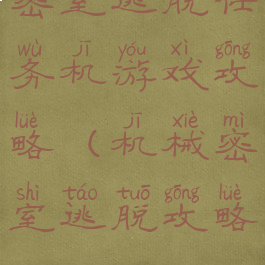 密室逃脱任
wù jī yóu xì gōng
务机游戏攻
lüè jī xiè mì
略（机械密
shì táo tuō gōng lüè
室逃脱攻略